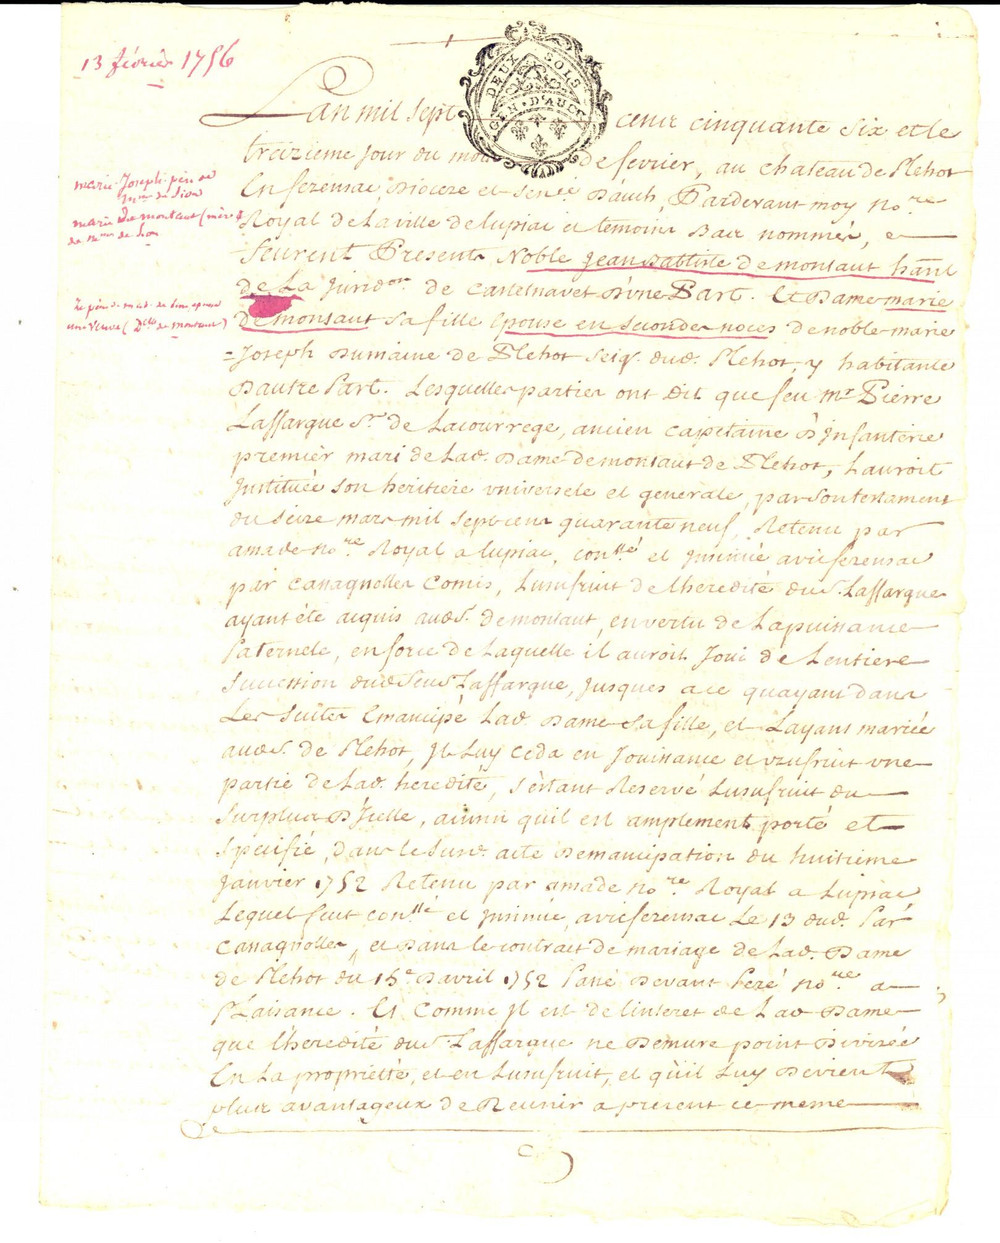 13 février 1756
DEUX SOLS
GEN • D'AUCH
Lan mil sept cent cinquante six et le
treizieme jour du mois de fevrier, au chateau de Plehot
En fezensac, Dioceze et Sen.ée D'auch, Pardevant moy no.re
Royal de la ville de lupiac et temoins bas nommés, 
feurent Presents Noble Jean Baptiste de montaut han̄t
de La Jurid.on de Castelnavet D'une Part. Et Dame marie
de montaut sa fille Epouse en secondes noces de noble marie
=Joseph Dumaine de Plehot seig.r dud. Plehot, y habitante
D'autre Part. Lesquelles parties ont dit que feu m.r Pierre
Laffargue S.r de Lacourrege, ancien Capitaine D'Infanterie
premier mari de Lad. Dame de montaut de Plehot, Lauroit
Instituée son heritiere universele et generale, par son testament
du seize mars mil sept cens quarante neuf, Retenu par
amade no.re Royal a lupiac, con.llé et Insinué a vicfezensac
par Canagnolles Comis, Lusufruit de lheredité dud S. Laffargue
ayant été acquis aud S. de montaut, en vertu de La puissance
Paternele, en force de Laquelle il auroit Joui de Lentiere
Succession dud Sieur Laffargue, jusques a ce quayant dans
Les suites Emancipé Lad. Dame Sa fille, et Layant mariée
aud S. de Plehot, Il Luy Ceda en Jouissance et uzufruit une
partie de Lad. heredité, s'étant Reservé Lusufruit du
Surplus D'Icelle, ainsi quil est amplement porté et
specifié, dans le susd. acte D'emancipation du huitieme
Janvier 1752 Retenu par amade no.re Royal a Lupiac
Lequel feut con.llé et Insinué, a vicfezensac Le 13 dud. Par
Canagnolles, et Dans le contrait de mariage de Lad. Dame
de Plehot du 15.e D'avril 1752 Passé Devant Peré no.re a
Plaisance. Et Comme Il est de linteret de Lad Dame
que Lheredité dud S. Laffargue ne Demure point Divisée
En La proprietté, et en Lusufruit, et quil Luy Devient
plus avantageux de Reunir a present ce meme
marie-Joseph père de
marie de montaut (mère
de de Lon